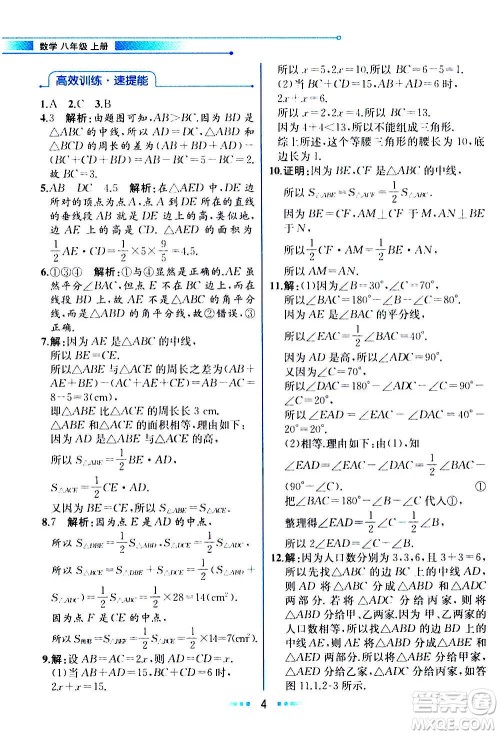 数学 八年级 上册
高效训练·速提能
1.A 2.C 3.B
4.3 解析：由题图可知，AB＞BC.因为BD是
△ABC的中线，所以AD＝CD.所以△ABD
与△BCD的周长之差为AB－BC＝3.
5.AB DC 4.5 解析：在△AED中，边DE所
对的顶点为点A，点A到DE所在直线的
垂线段为AB，故DE边上的高为AB.类似地，
边AE上的高为DC.△AED的面积等于
1/2AE·CD＝1/2×5×9/5＝4.5.
6.①③④ 解析：①与④显然是正确的.AE虽
然平分∠BAC，但AE不是△ABC的角平分
线，线段AD是△ABE的角平分线，故②错误，
③正确.
7.解：因为AE是△ABC的中线，
所以BE＝CE.
所以△ABE与△ACE的周长之差为(AB＋
AE＋BE)－(AC＋AE＋CE)＝AB－AC＝
8－5＝3(cm)，
即△ABE与△ACE的周长相差3 cm.
△ABE与△ACE的面积相等，理由如下：
因为AD是△ABE与△ACE的高，
所以S△ABE＝1/2BE·AD，
S△ACE＝1/2CE·AD.
又因为BE＝CE，所以S△ABE＝S△ACE.
8.7 解析：因为点E是AD的中点，
所以S△DBE＝1/2S△ABD，S△DCE＝1/2S△ACD.
所以S△BCE＝1/2S△ABC＝1/2×28＝14(cm²).
因为点F是CE的中点，
所以S△BEF＝1/2S△BCE＝1/2×14＝7(cm²).
9.解：设AB＝AC＝2x，则AD＝CD＝x.
(1)当AB＋AD＝15，BC＋CD＝6时，有
2x＋x＝15.
所以x＝5，2x＝10，BC＝6－5＝1.
(2)当BC＋CD＝15，AB＋AD＝6时，有
2x＋x＝6.
所以x＝2，2x＝4，BC＝13.
因为4＋4＜13，所以不能组成三角形.
综上所述，这个等腰三角形的腰长为10，底
边长为1.
10.证明：因为BE，CF是△ABC的中线，
所以S△ABE＝1/2S△ABC，S△ACF＝1/2S△ABC.
所以S△ABE＝S△ACF.
因为AM⊥CF，AN⊥BE，BE＝CF，
所以AM＝AN.
11.解：(1)因为∠B＝30°，∠C＝70°，
所以∠BAC＝180°－∠B－∠C＝80°.
因为AE是△ABC的角平分线，
所以∠EAC＝1/2∠BAC＝40°.
又∠C＝70°，
所以∠DAC＝180°－90°－∠C＝20°.
所以∠EAD＝∠EAC－∠DAC＝20°.
(2)相等.理由如下：
由(1)知，
∠EAD＝∠EAC－∠DAC＝1/2∠BAC－
(90°－∠C) ①
把∠BAC＝180°－∠B－∠C代入①，
整理得∠EAD＝1/2∠C－1/2∠B，
所以2∠EAD＝∠C－∠B.
12.解：因为人口数分别为3和3，且3＋3＝6，
所以先找到△ABC中BC的中线AD，
则AD将△ABC分成△ABD与△ADC
两部分，△ADC分给丙家，则丙家的
面积与甲、乙两家的总面积相等.因为甲、乙两家的
人口数相等，所以作△ABD的
中线DE，则DE将△ABD分为△EBD与
△AED两部分.所以△EBD分给甲家，
△AED分给乙家.△ADC分给丙家，如答图
11.1.2-3所示.
4
答案圈
MXQE.COM